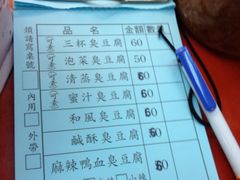 品名 金額 數量
可素 三杯臭豆腐 60
可素 泡菜臭豆腐 50
可素 清蒸臭豆腐 60
可素 蜜汁臭豆腐 60
和風臭豆腐 60
鹹酥臭豆腐 60
麻辣鴨血臭豆腐 60
煩請寫桌號
內用
外帶